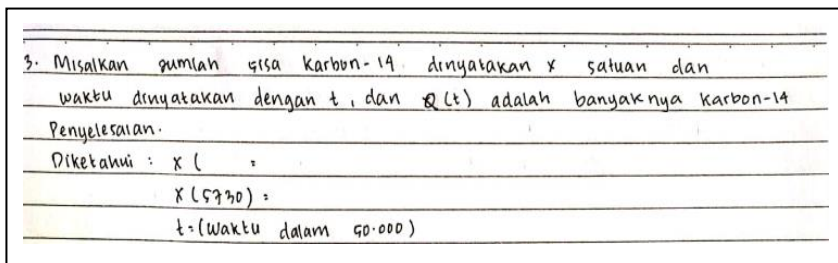 3. Misalkan jumlah sisa karbon-14 dinyatakan x satuan dan
waktu dinyatakan dengan t, dan Q(t) adalah banyaknya karbon-14
Penyelesaian.
Diketahui : x ( =
x (5730) =
t = (waktu dalam 50.000)